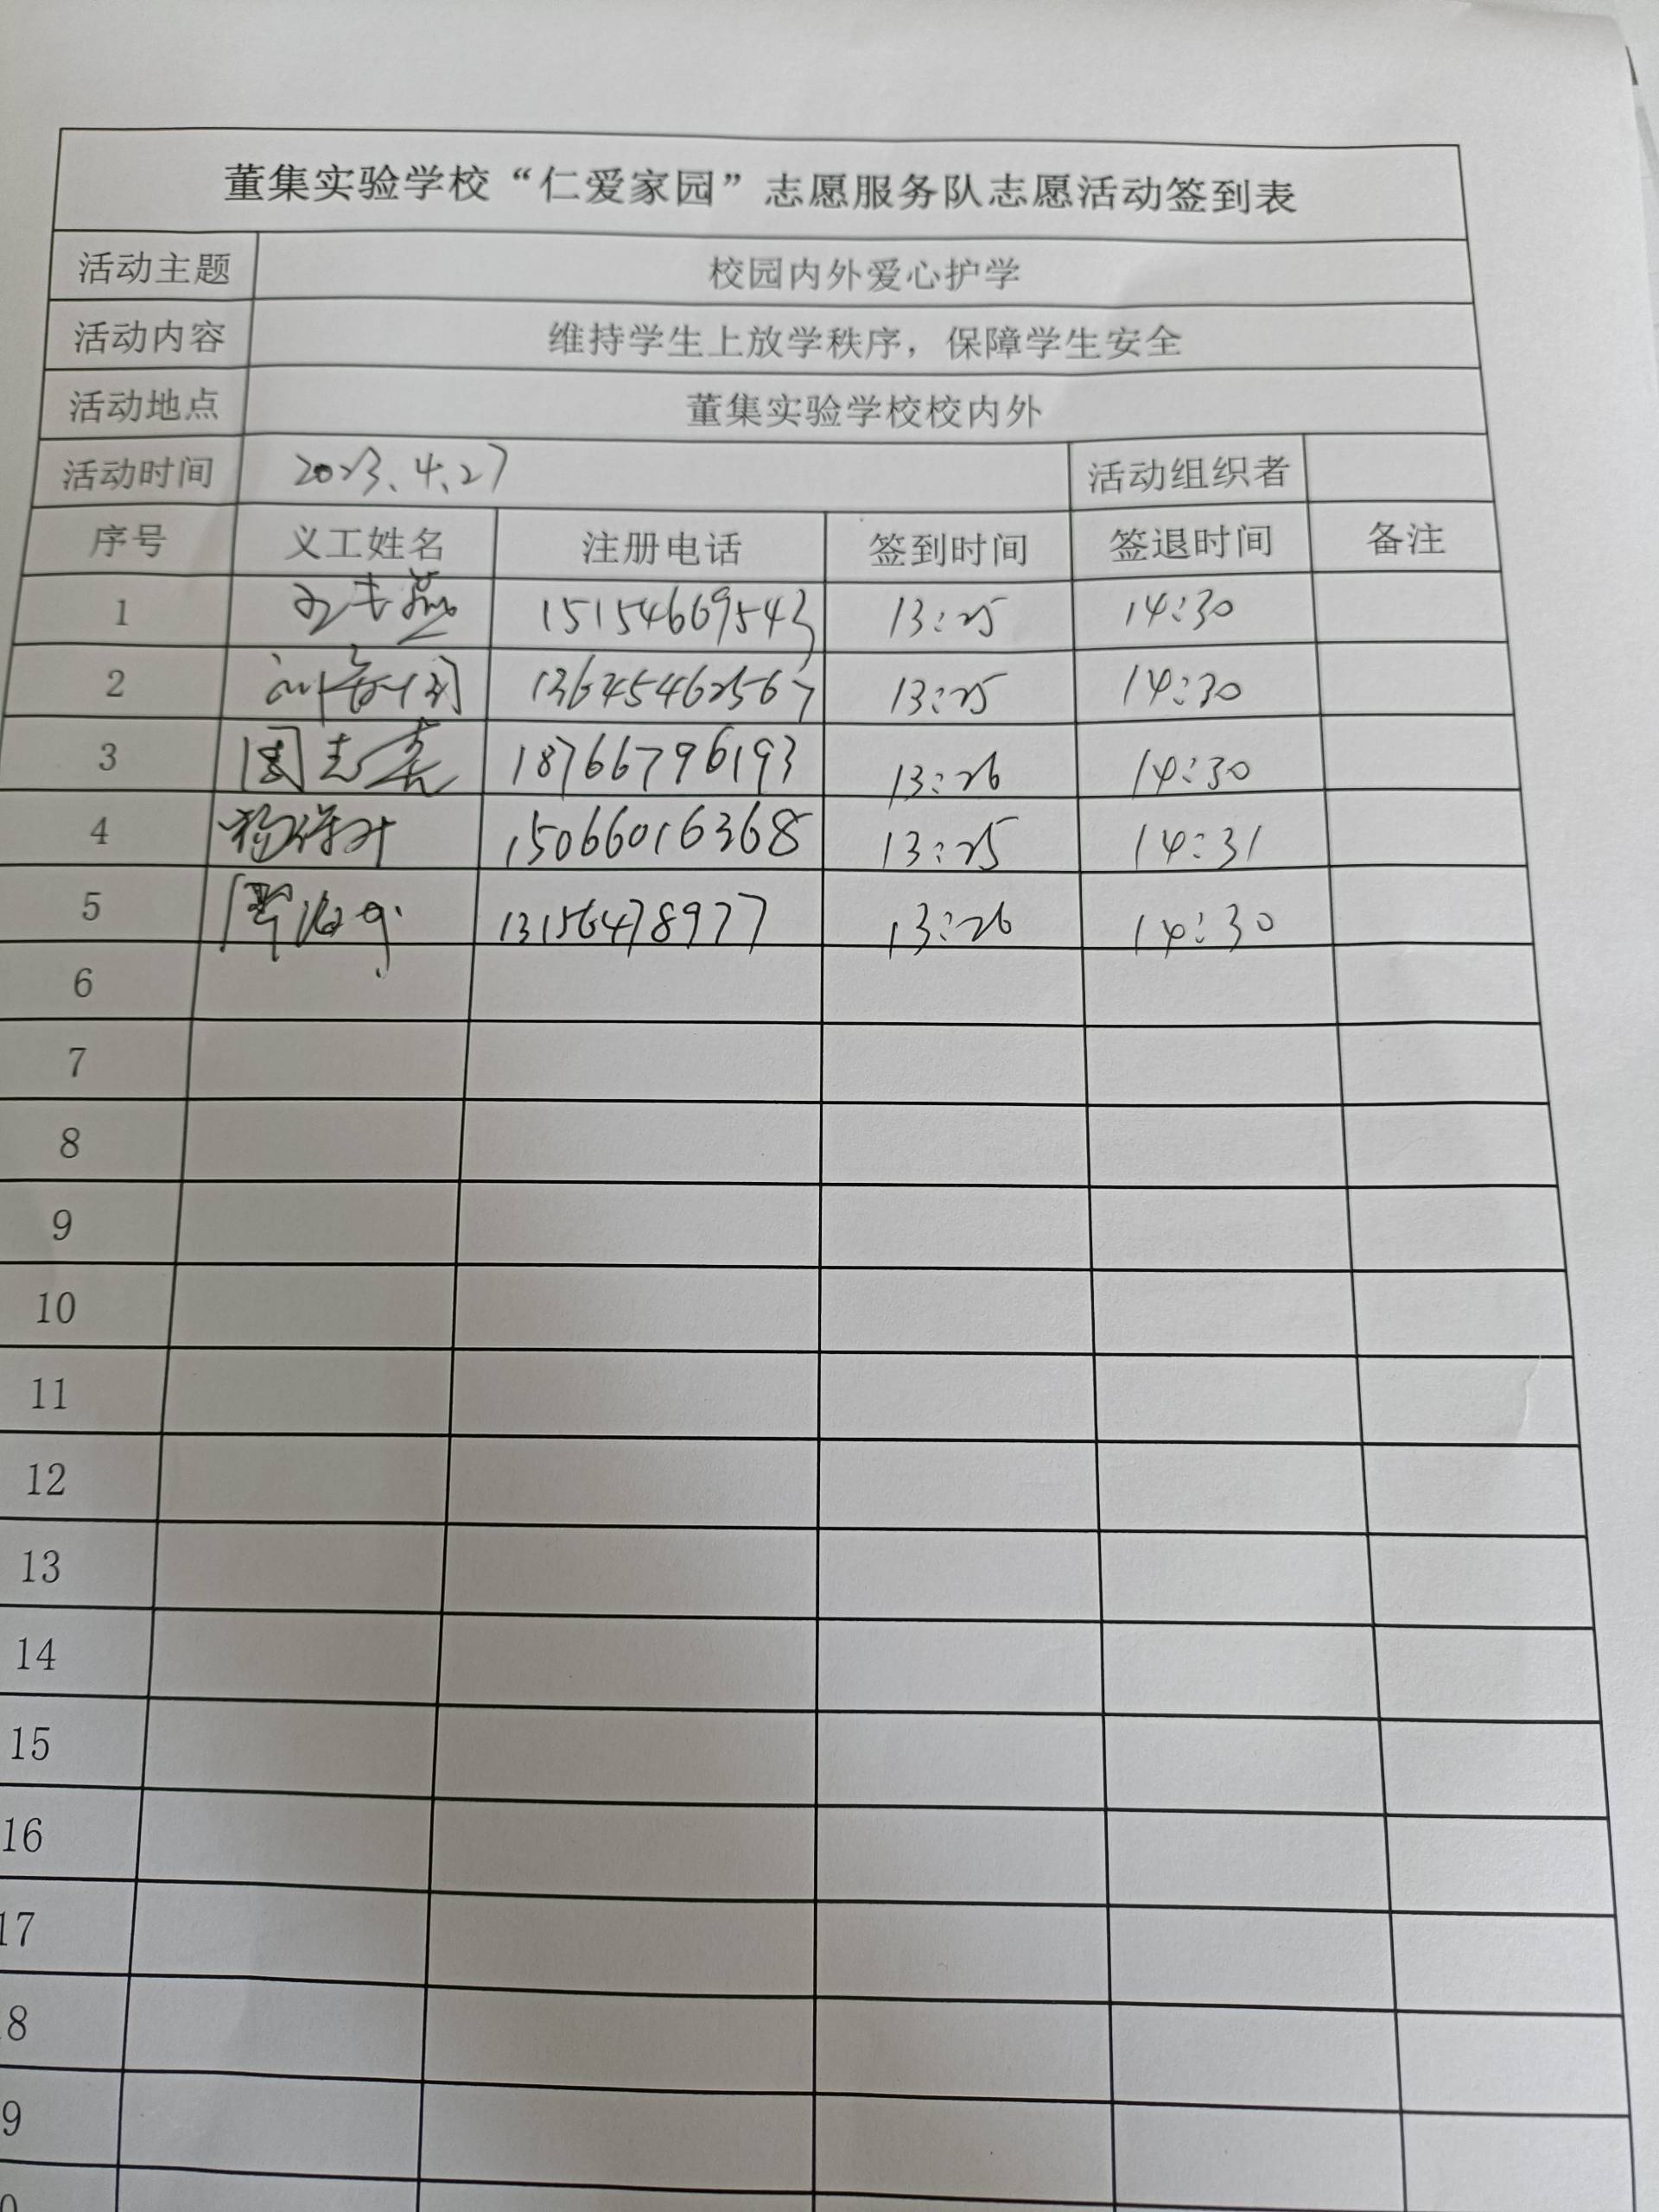 董集实验学校“仁爱家园”志愿服务队志愿活动签到表
活动主题 校园内外爱心护学
活动内容 维持学生上放学秩序，保障学生安全
活动地点 董集实验学校校内外
活动时间 2023.4.27 活动组织者
序号 义工姓名 注册电话 签到时间 签退时间 备注
1 15154669543 13:25 14:30
2 13645462567 13:25 14:30
3 18766796193 13:26 14:30
4 15066016368 13:25 14:31
5 13156478977 13:26 14:30
6
7
8
9
10
11
12
13
14
15
16
17
8
9
0